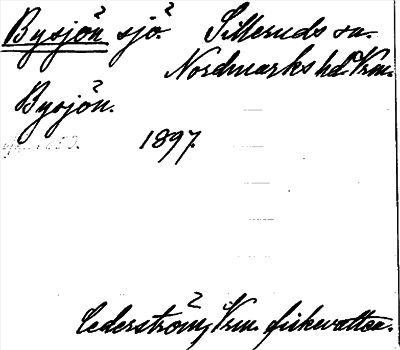 Bysjön sjö. Silleruds sn.
Nordmarks hd. Vrm.
Bysjön.
1897.
Cederström, Vrm. fiskevatten.